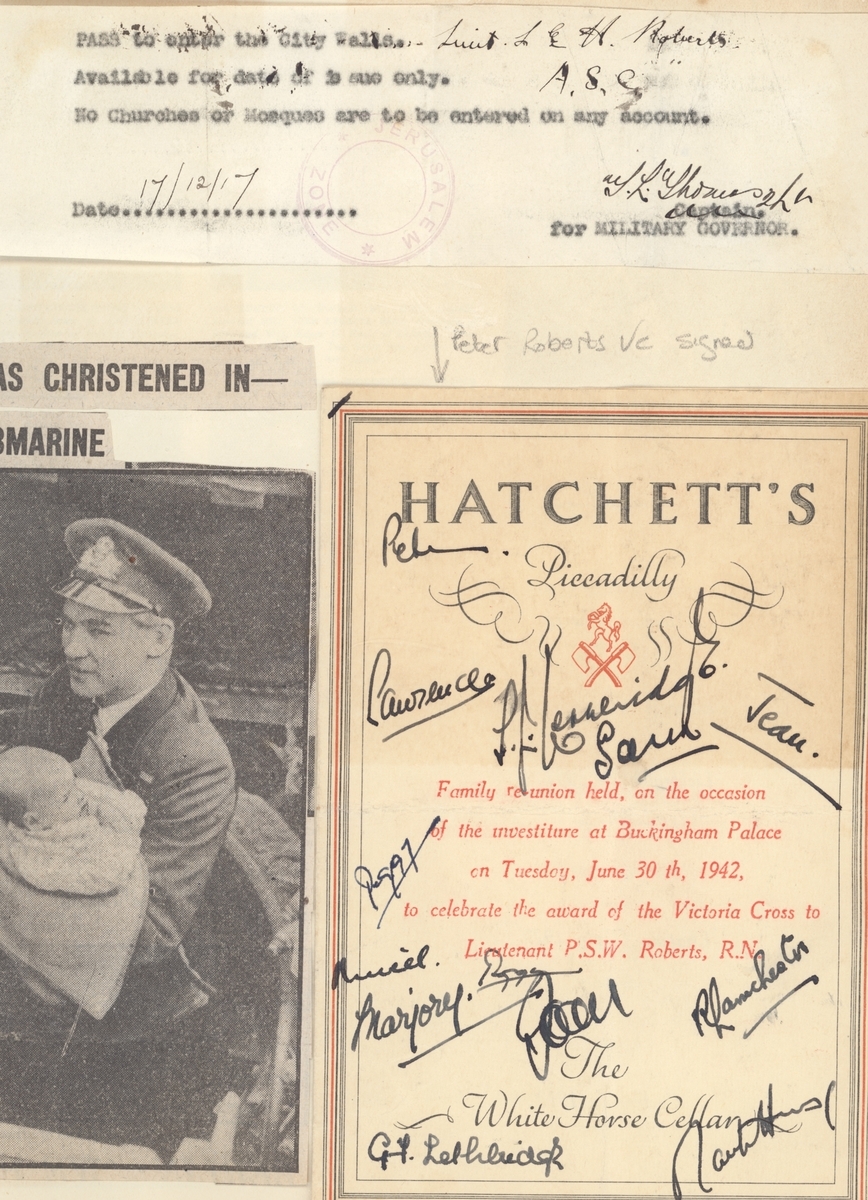 PASS to enter the City Walls. Lieut. L E H. Roberts.
Available for date of issue only. A. S. C.
No Churches or Mosques are to be entered on any account.
JERUSALEM ZONE
Date 17/12/17
Thomas
Captain.
for MILITARY GOVERNOR.
Peter Roberts VC signed
AS CHRISTENED IN—
BMARINE
HATCHETT'S
Peter.
Piccadilly
Lawrence
Jean.
Family re-union held, on the occasion
of the investiture at Buckingham Palace
Peggy
on Tuesday, June 30 th, 1942,
to celebrate the award of the Victoria Cross to
Lieutenant P.S.W. Roberts, R.N.
Muriel.
Marjory.
The
White Horse Cellar
G.F. Lethbridge